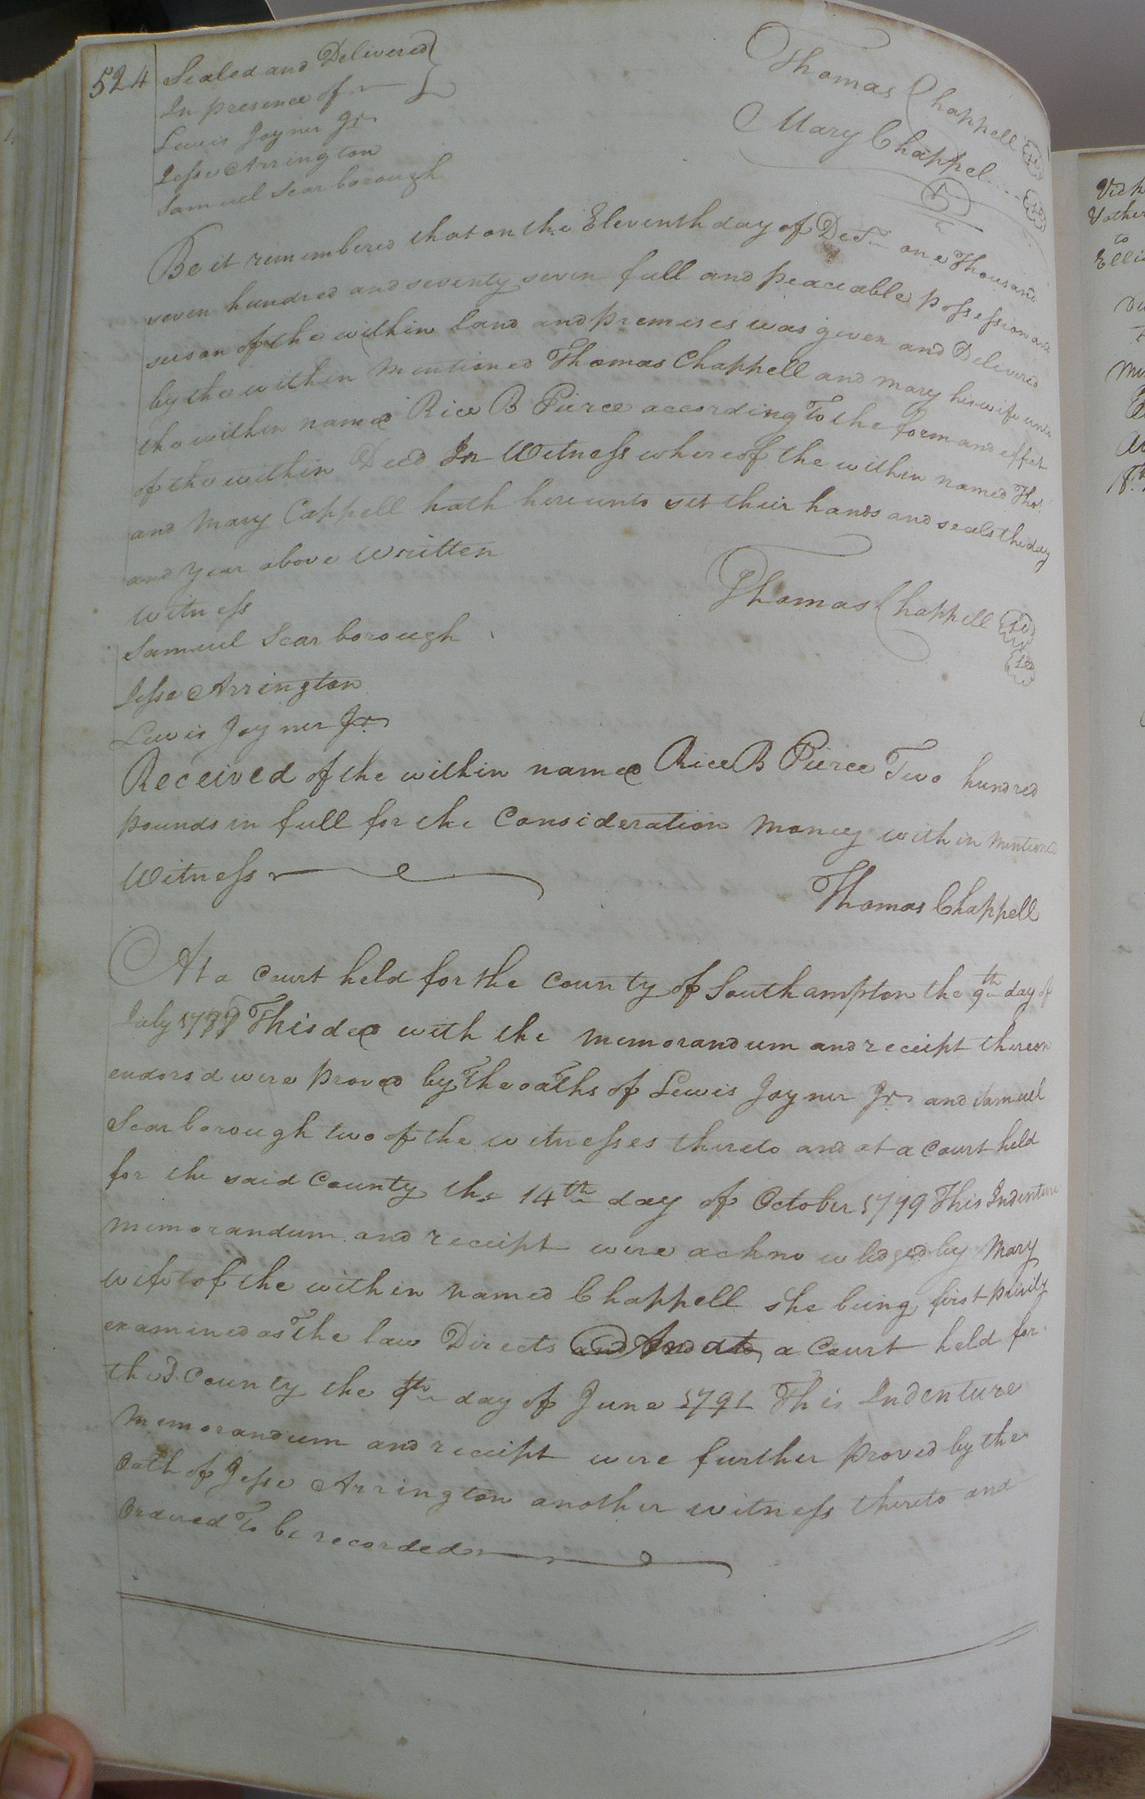 524
Sealed and Delivered
In presence of
Lewis Joyner Jr
Jesse Arrington
Samuel Scarborough
Thomas Chappell
Mary Chappel
Be it remembered that on the Eleventh day of Decr. one Thousand
seven hundred and seventy seven full and peaceable possession and
seison of the within Land and premises was given and Delivered
by the within Mentioned Thomas Chappell and Mary his wife unto
the within named Rice B Pierce according To the form and effect
of the within Deed In Witness whereof the within named Thos.
and Mary Cappell hath hereunto set their hands and seals the day
and year above Written
Witness
Samuel Scarborough
Jesse Arrington
Lewis Joyner Jr.
Thomas Chappell
Received of the within named Rice B Pierce Two hundred
pounds in full for the Consideration Money within mentioned
Witness
Thomas Chappell
At a Court held for the County of Southampton the 9th day of
July This deed with the memorandum and receipt thereon
endorsd were proved by The oaths of Lewis Joyner Jr. and Samuel
Scarborough two of the witnesses thereto and at a Court held
for the said County the 14th day of October 1779 This Indenture
memorandum and receipt were acknowledged by Mary
wife of the within named Chappell she being first privily
examined as The law Directs and And at a Court held for
the sd. County the 9th day of June 1791 This Indenture
Memorandum and receipt were further proved by the
Oath of Jesse Arrington another witness thereto and
Ordered To be recorded